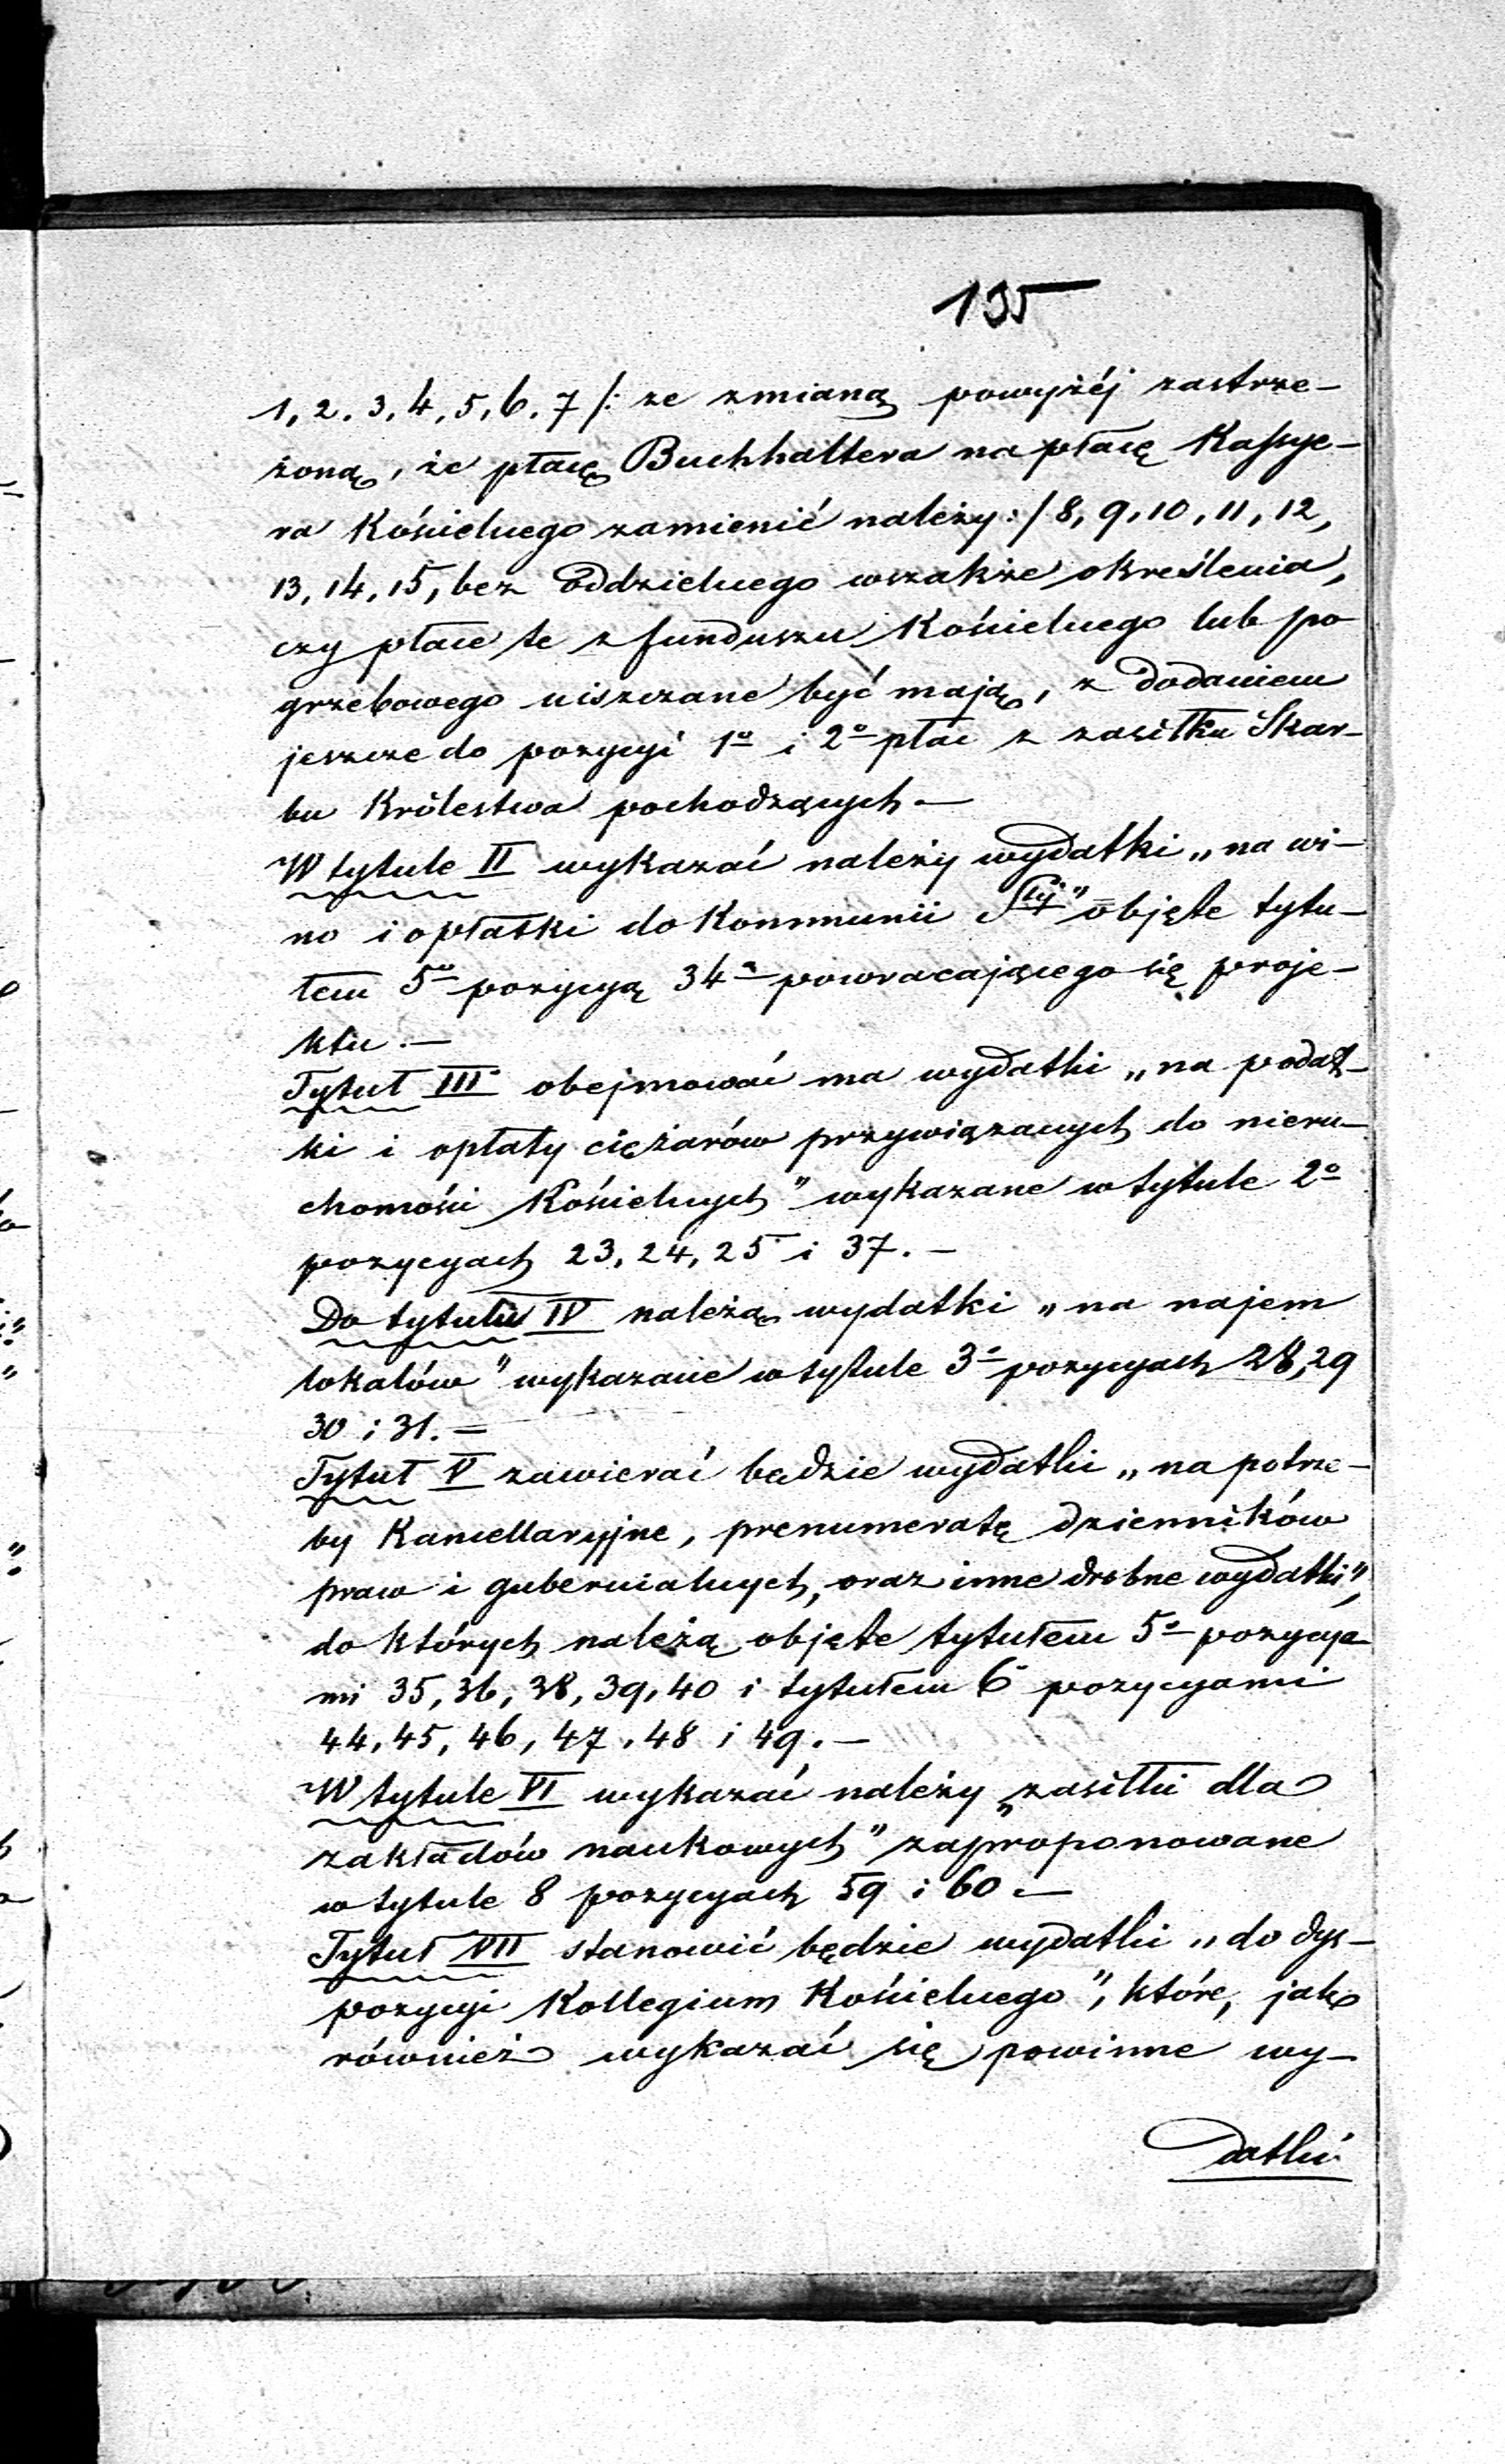 135
1, 2, 3, 4, 5, 6, 7 /: ze zmianą powyżéj zastrze-
żoną, że płacę Buchhaltera na płacę Kassye-
ra Kościelnego zamienić należy :/ 8, 9, 10, 11, 12,
13, 14, 15, bez oddzielnego wszakże określenia,
czy płace te z funduszu Kościelnego lub po
grzebowego uiszczane być mają, z dodaniem
jeszcze do pozycyi 1º i 2º płac z zasiłku Skar-
bu Królestwa pochodzących.—
W tytule II wykazać należy wydatki „na wi-
no i opłatki do Kommunii Stéj” objęte tytu-
łem 5º pozycyą 34ª powracającego się proje-
ktu.—
Tytuł III obejmować ma wydatki „na podat-
ki i opłaty ciężarów przywiązanych do nieru-
chomości Kościelnych” wykazane w tytule 2º
pozycyach 23, 24, 25 i 37.—
Do tytułu IV należą wydatki „na najem
lokalów” wykazane w tytule 3º pozycyach 28, 29
30 i 31.=
Tytuł V zawierać będzie wydatki „na potrze-
by Kancellaryjne, prenumeratę dzienników
praw i gubernialnych, oraz inne drobne wydatki”,
do których należą objęte tytułem 5º pozycya-
mi 35, 36, 38, 39, 40 i tytułem 6 pozycyami
44, 45, 46, 47, 48 i 49.—
W tytule VI wykazać należy „zasiłki dla
zakładów naukowych” zaproponowane
w tytule 8 pozycyach 59 i 60.—
Tytuł VII stanowić będzie wydatki „do dys-
pozycyi Kollegium Kościelnego”, które, jako
również wykazać się powinne wy-
datki